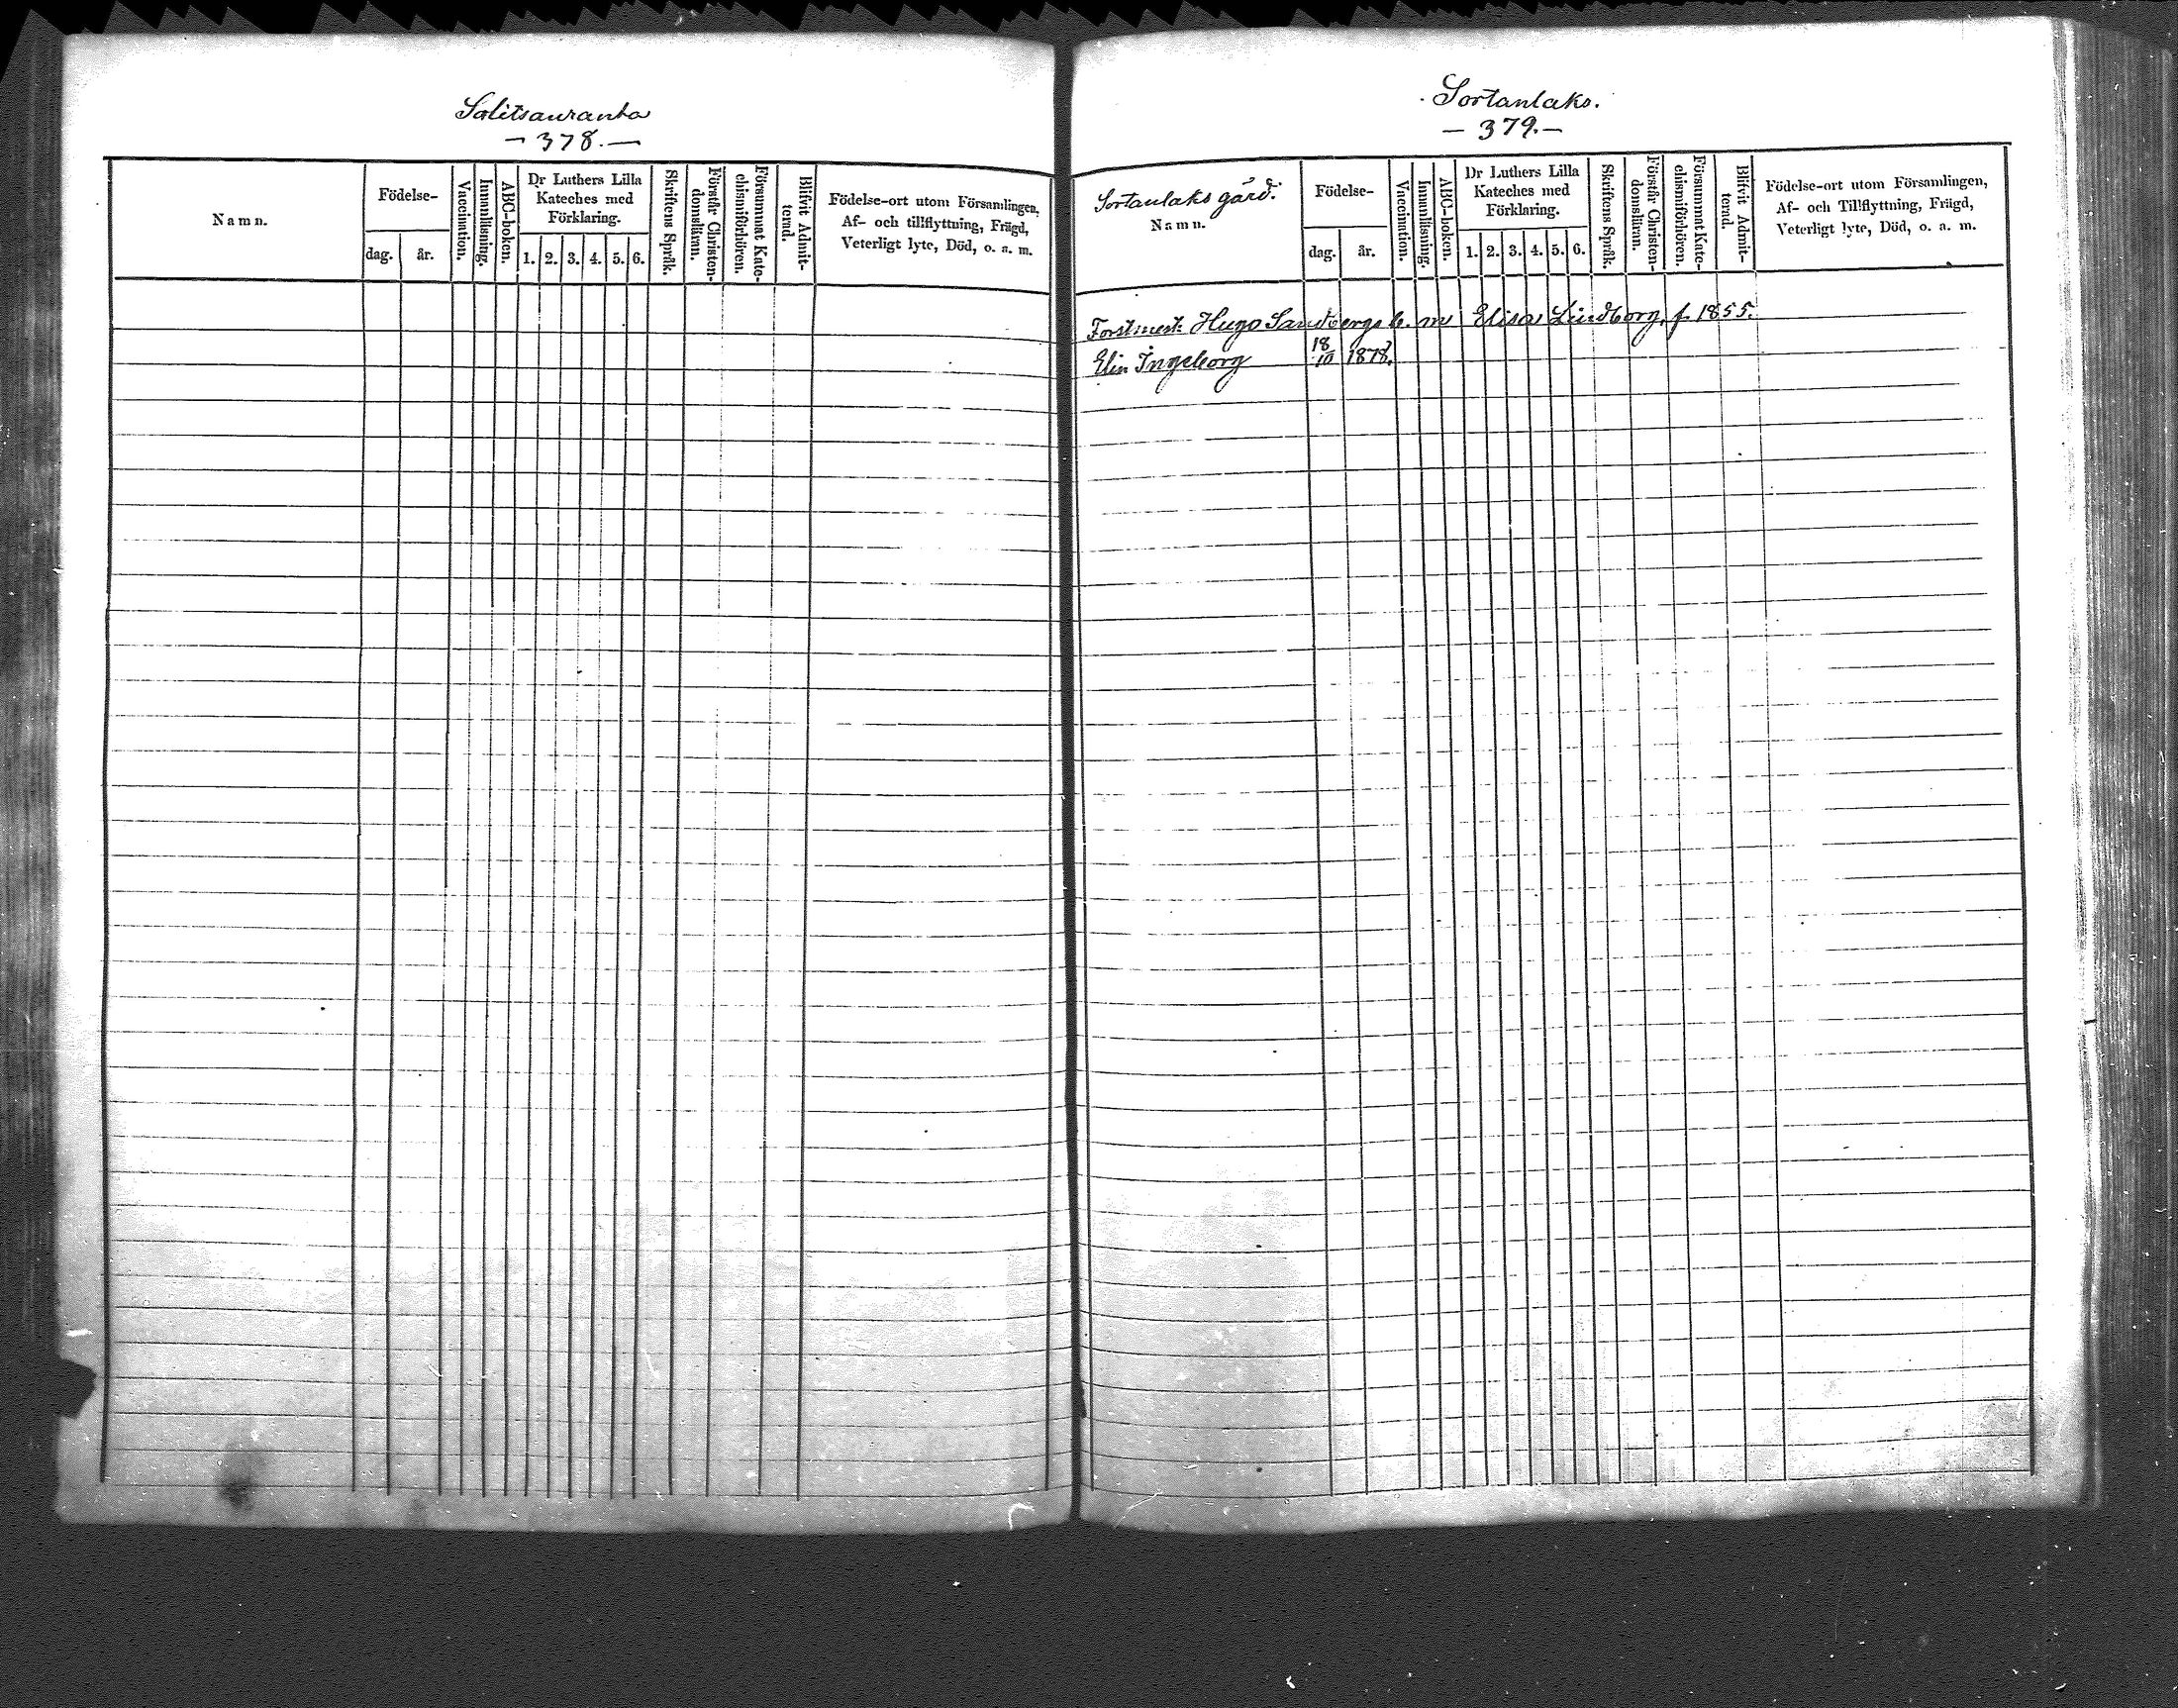 Salitsauranta
– 378. –
Namn.
Födelse-
dag.
år.
Vaccination.
Innanläsning.
ABC-boken.
Dr Luthers Lilla
Kateches med
Förklaring.
1. 2. 3. 4. 5. 6.
Skriftens Språk.
Förstår Christen-
domsläran.
Försummat Kate-
chismiförhören.
Blifvit Admit-
terad.
Födelse-ort utom Församlingen,
Af- och tillflyttning, Frägd,
Veterligt lyte, Död, o. a. m.
Sortanlaks.
– 379. –
Sortanlaks gård.
Namn.
Födelse-
dag.
år.
Vaccination.
Innanläsning.
ABC-boken.
Dr Luthers Lilla
Kateches med
Förklaring.
1. 2. 3. 4. 5. 6.
Skriftens Språk.
Förstår Christen-
domsläran.
Försummat Kate-
chismiförhören.
Blifvit Admit-
terad.
Födelse-ort utom Församlingen,
Af- och Tillflyttning, Frägd,
Veterligt lyte, Död, o. a. m.
Forstmest. Hugo Sandbergs b. m Elisa Lindborg, f. 1855.
Elin Ingeborg 18/III 1878.